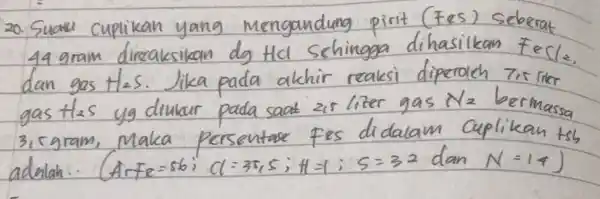 20. Suatu cuplikan yang mengandung pirit (FeS) seberat
44 gram direaksikan dg HCl sehingga dihasilkan FeCl2,
dan gas H2S. Jika pada akhir reaksi diperoleh 7,5 liter
gas H2S yg diukur pada saat 2,5 liter gas N2 bermassa
3,5 gram, Maka Persentase FeS didalam cuplikan tsb
adalah.. (Ar Fe = 56; Cl = 35,5; H = 1; S = 32 dan N = 14)